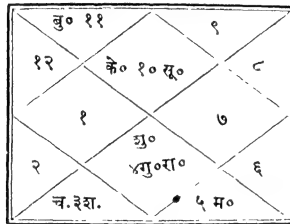 बु० ११
९
१२
के० १० सू०
८
१
७
शु०
४गु०रा०
२
६
च.३श.
५ म०